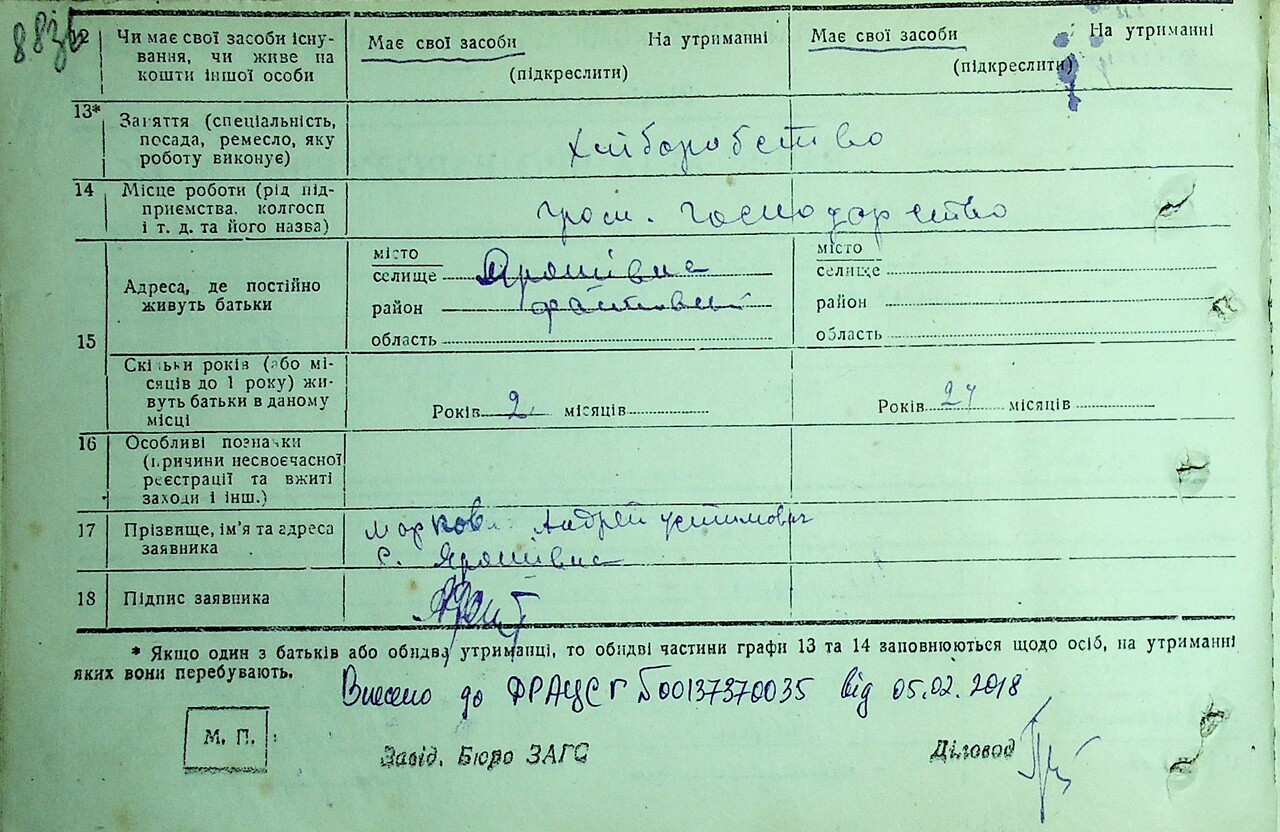 883б
12 Чи має свої засоби існу-
вання, чи живе на
кошти іншої особи
Має свої засоби На утриманні
(підкреслити)
Має свої засоби На утриманні
(підкреслити)
13* Заняття (спеціальність,
посада, ремесло, яку
роботу виконує)
Хліборобство
14 Місце роботи (рід під-
приємства, колгосп
і т. д. та його назва)
гром. господарство
15 Адреса, де постійно
живуть батьки
місто
селище Ярошівка
район фастовський
область
місто
селище
район
область
Скільки років (або мі-
сяців до 1 року) жи-
вуть батьки в даному
місці
Років 2 місяців
Років 24 місяців
16 Особливі позначки
(причини несвоєчасної
реєстрації та вжиті
заходи і інш.)
17 Прізвище, ім'я та адреса
заявника
Андрей Устимович
с. Ярошівка
18 Підпис заявника
* Якщо один з батьків або обидва утриманці, то обидві частини графи 13 та 14 заповнюються щодо осіб, на утриманні
яких вони перебувають.
Внесено до ФРАЦСГ 00137370035 від 05.02.2018
М. П.
Завід. Бюро ЗАГС
Діловод